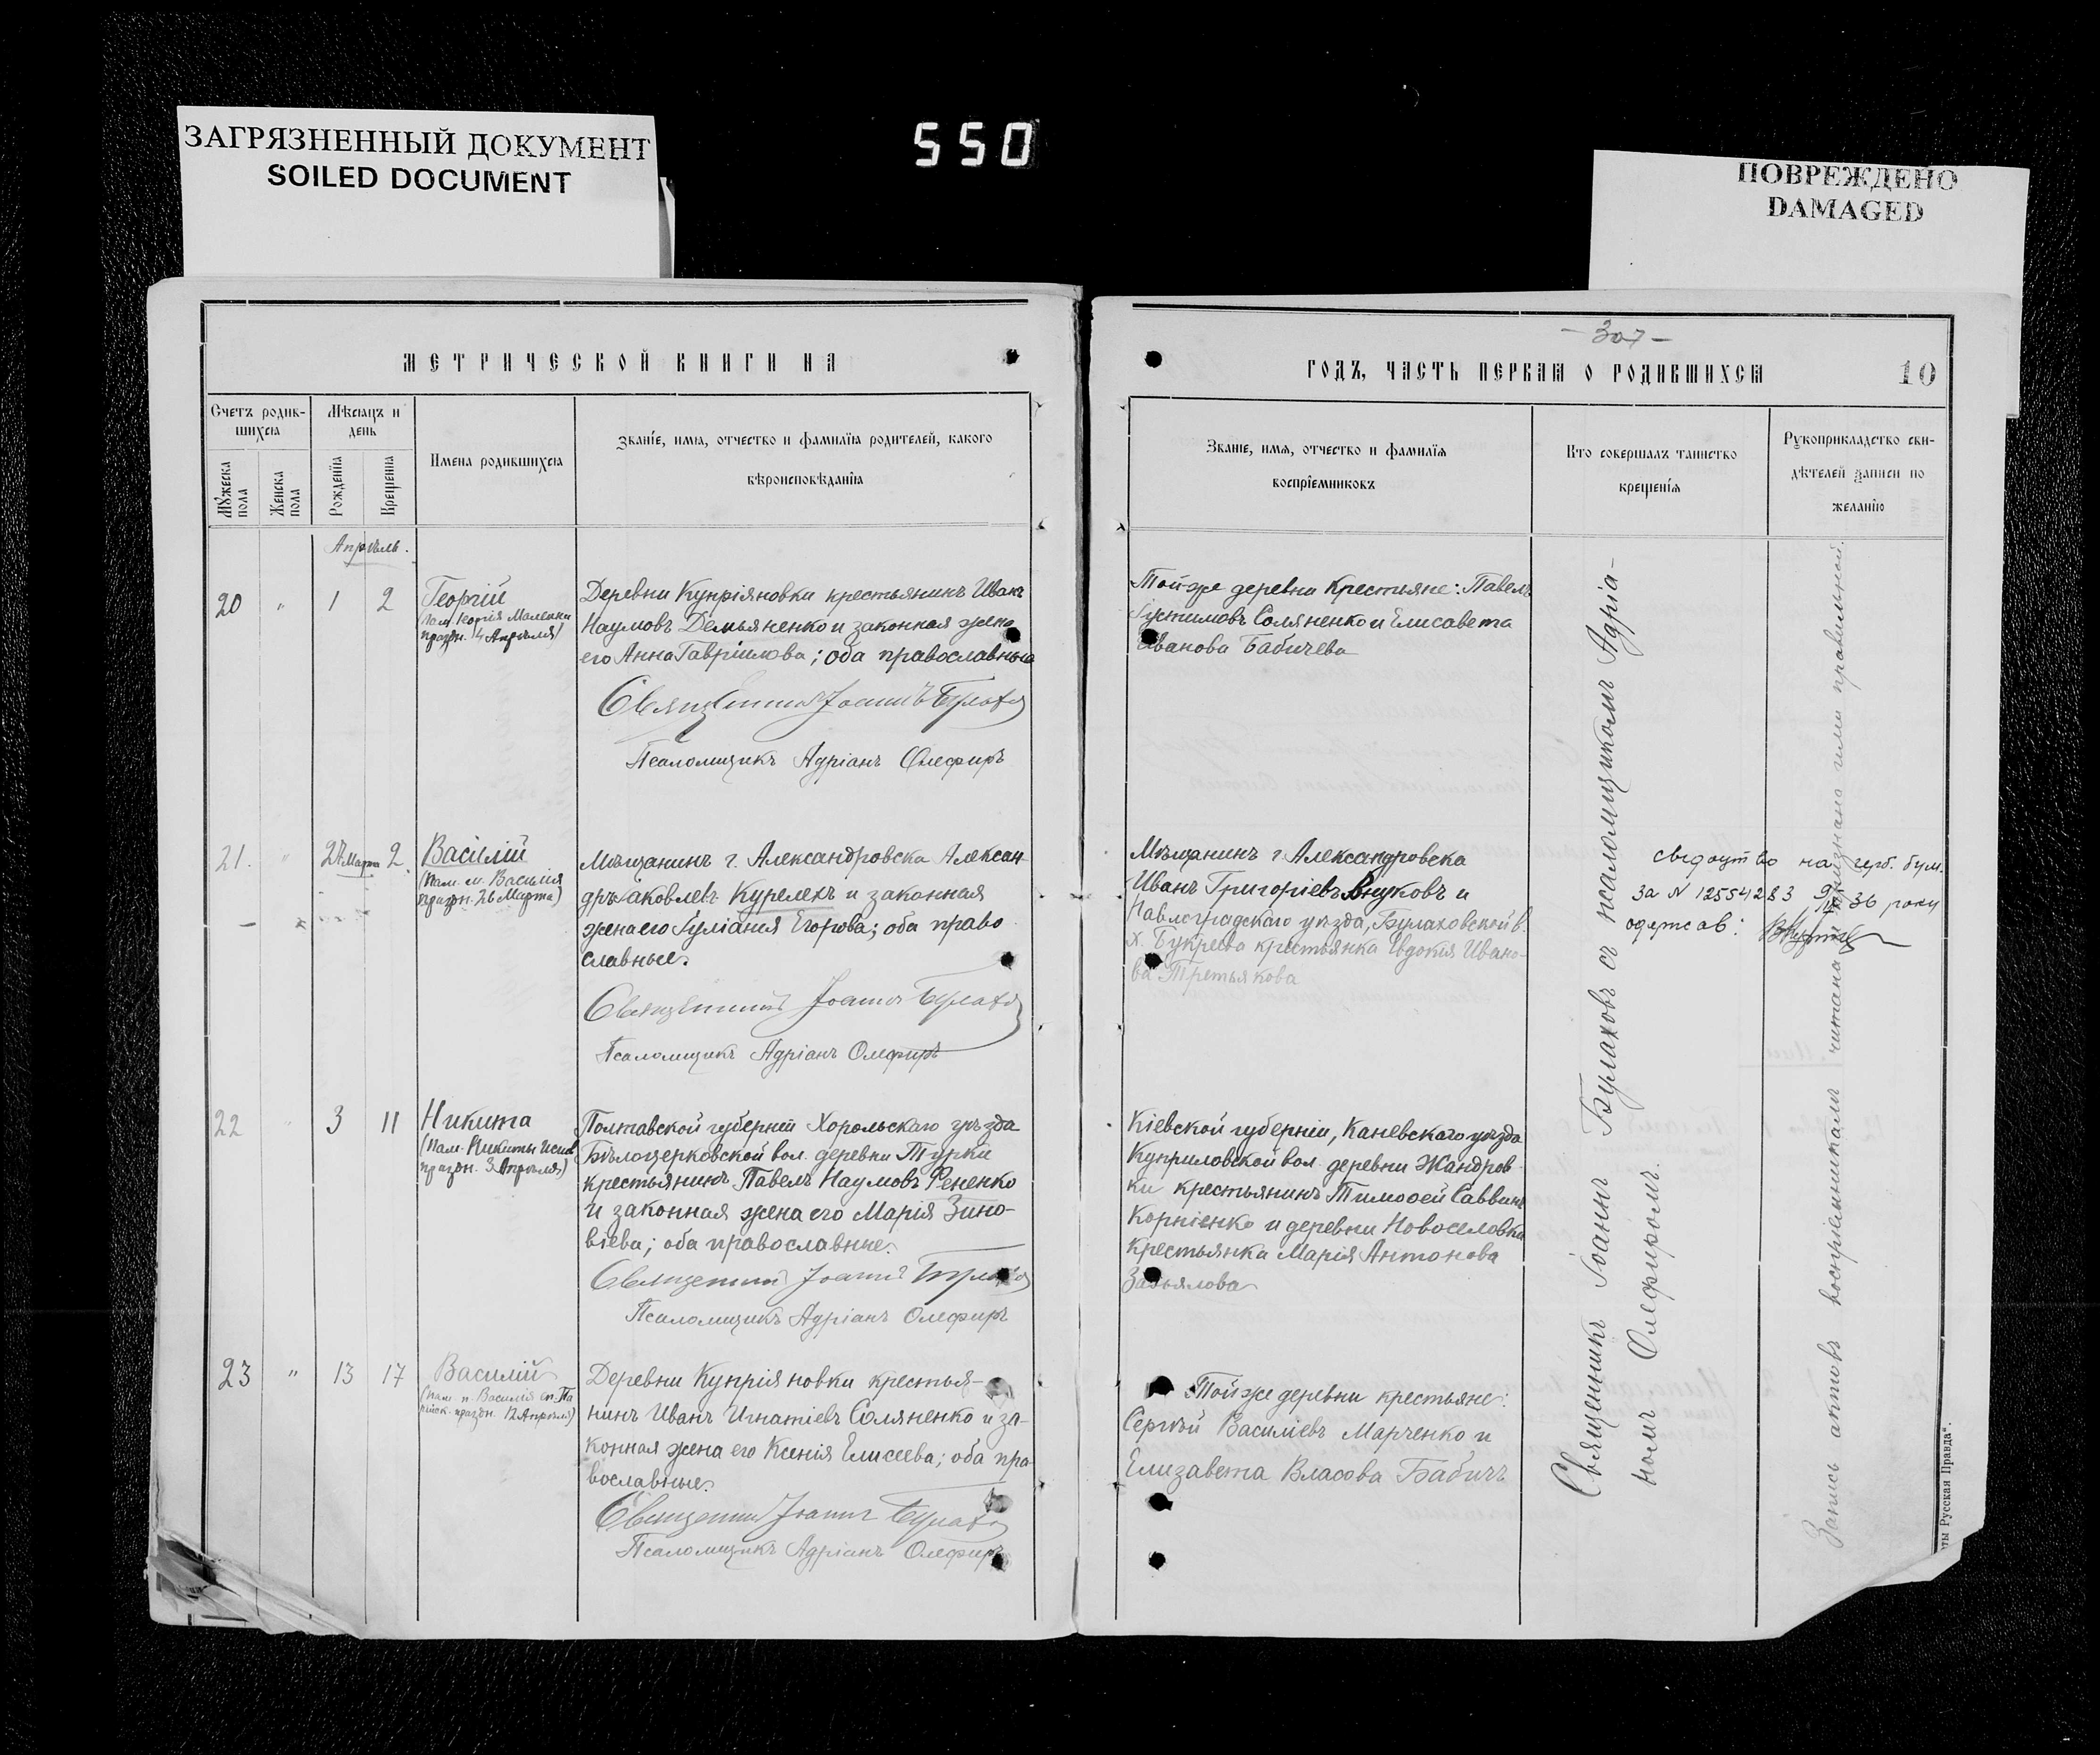 ЗАГРЯЗНЕННЫЙ ДОКУМЕНТ
SOILED DOCUMENT
550
ПОВРЕЖДЕНО
DAMAGED
МЕТРИЧЕСКОЙ КНИГИ НА
Счетъ родив-
шихся
Мѣсяцъ и
день
Мужеска
пола
Женска
пола
Рожденія
Крещенія
Имена родившихся
Званіе, имя, отчество и фамилія родителей, какого
вѣроисповѣданія
Апрѣль.
20 " 1 2
Георгій
(пам. Георгія Малеина
праздн. 4 Апрѣля)
Деревни Купріяновки крестьянинъ Иванъ
Наумовъ Демьяненко и законная жена
его Анна Гавріилова; оба православные
Священникъ Іоаннъ Булахов
Псаломщикъ Адріанъ Олефиръ
21. " 27 Марта 2.
Василій
(пам. м. Василія
праздн. 26 Марта)
Мѣщанинъ г. Александровска Алексан-
дръ Яковлевъ Курелехъ и законная
жена его Іуліанія Егорова; оба право
славные.
Священникъ Іоаннъ Булахов
Псаломщикъ Адріанъ Олефиръ
22 " 3 11
Никита
(Пам. Никиты Испов.
праздн. 3 Апрѣля)
Полтавской губерніи Хорольскаго уѣзда
Бѣлоцерковской вол. деревни Турки
крестьянинъ Павелъ Наумовъ Рененко
и законная жена его Марія Зино-
віева; оба православные.
Священникъ Іоаннъ Булахов
Псаломщикъ Адріанъ Олефиръ
23 " 13 17
Василій
(пам. п. Василія еп. Па
рійск. праздн. 12 Апрѣля)
Деревни Купріяновки крестья-
нинъ Иванъ Игнатіевъ Соляненко и за-
конная жена его Ксенія Елисеева; оба пра
вославные.
Священникъ Іоаннъ Булахов
Псаломщикъ Адріанъ Олефиръ
- 307 -
ГОДЪ, ЧАСТЬ ПЕРВАЯ О РОДИВШИХСЯ
10
Званіе, имя, отчество и фамилія
воспріемниковъ
Кто совершалъ таинство
крещенія
Рукоприкладство сви-
дѣтелей записи по
желанію
Той-же деревни крестьяне: Павелъ
Іустимовъ Соляненко и Елисавета
Иванова Бабичева
Мѣщанинъ г. Александровска
Иванъ Григоріевъ Внуковъ и
Павлоградскаго уѣзда, Булаховской в.
х. Букрева крестьянка Евдокія Ивано-
ва Третьякова
Кіевской губерніи, Каневскаго уѣзда
Куриловской вол. деревни Жандров-
ки крестьянинъ Тимоѳей Саввинъ
Корніенко и деревни Новоселовки
крестьянка Марія Антонова
Завьялова
Той же деревни крестьяне:
Сергѣй Василіевъ Марченко и
Елизавета Власова Бабичъ
Священникъ Іоаннъ Булаховъ съ псаломщикомъ Адріа-
номъ Олефиромъ.
свідоцтво на герб. бум.
за № 1255428
36 року
одержав:
Запись актовъ воспріемникамъ читана и признана ими правильной.
ты Русская Правда".